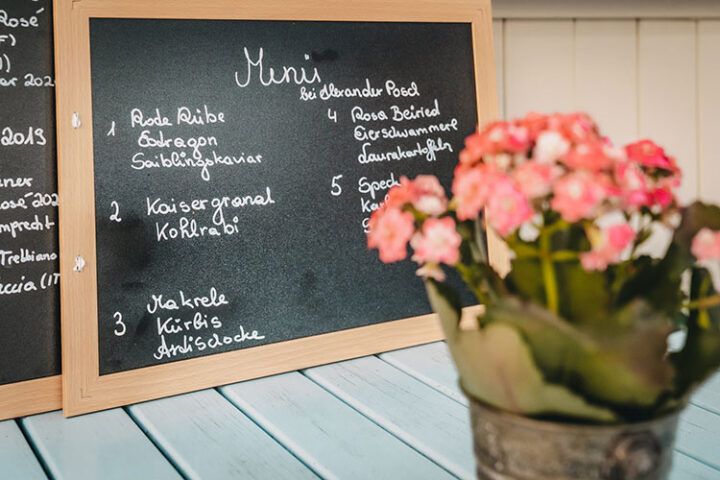 Rosé
2019
Rosé 202
Trebbiano
Menü
bei Alexander Posch
1 Rode Rübe
Esdragon
Saiblingskaviar
2 Kaisergranat
Kohlrabi
3 Makrele
Kürbis
Artischocke
4 Rosa Beiried
Eierschwammerl
Laurakartoffeln
5 Speck